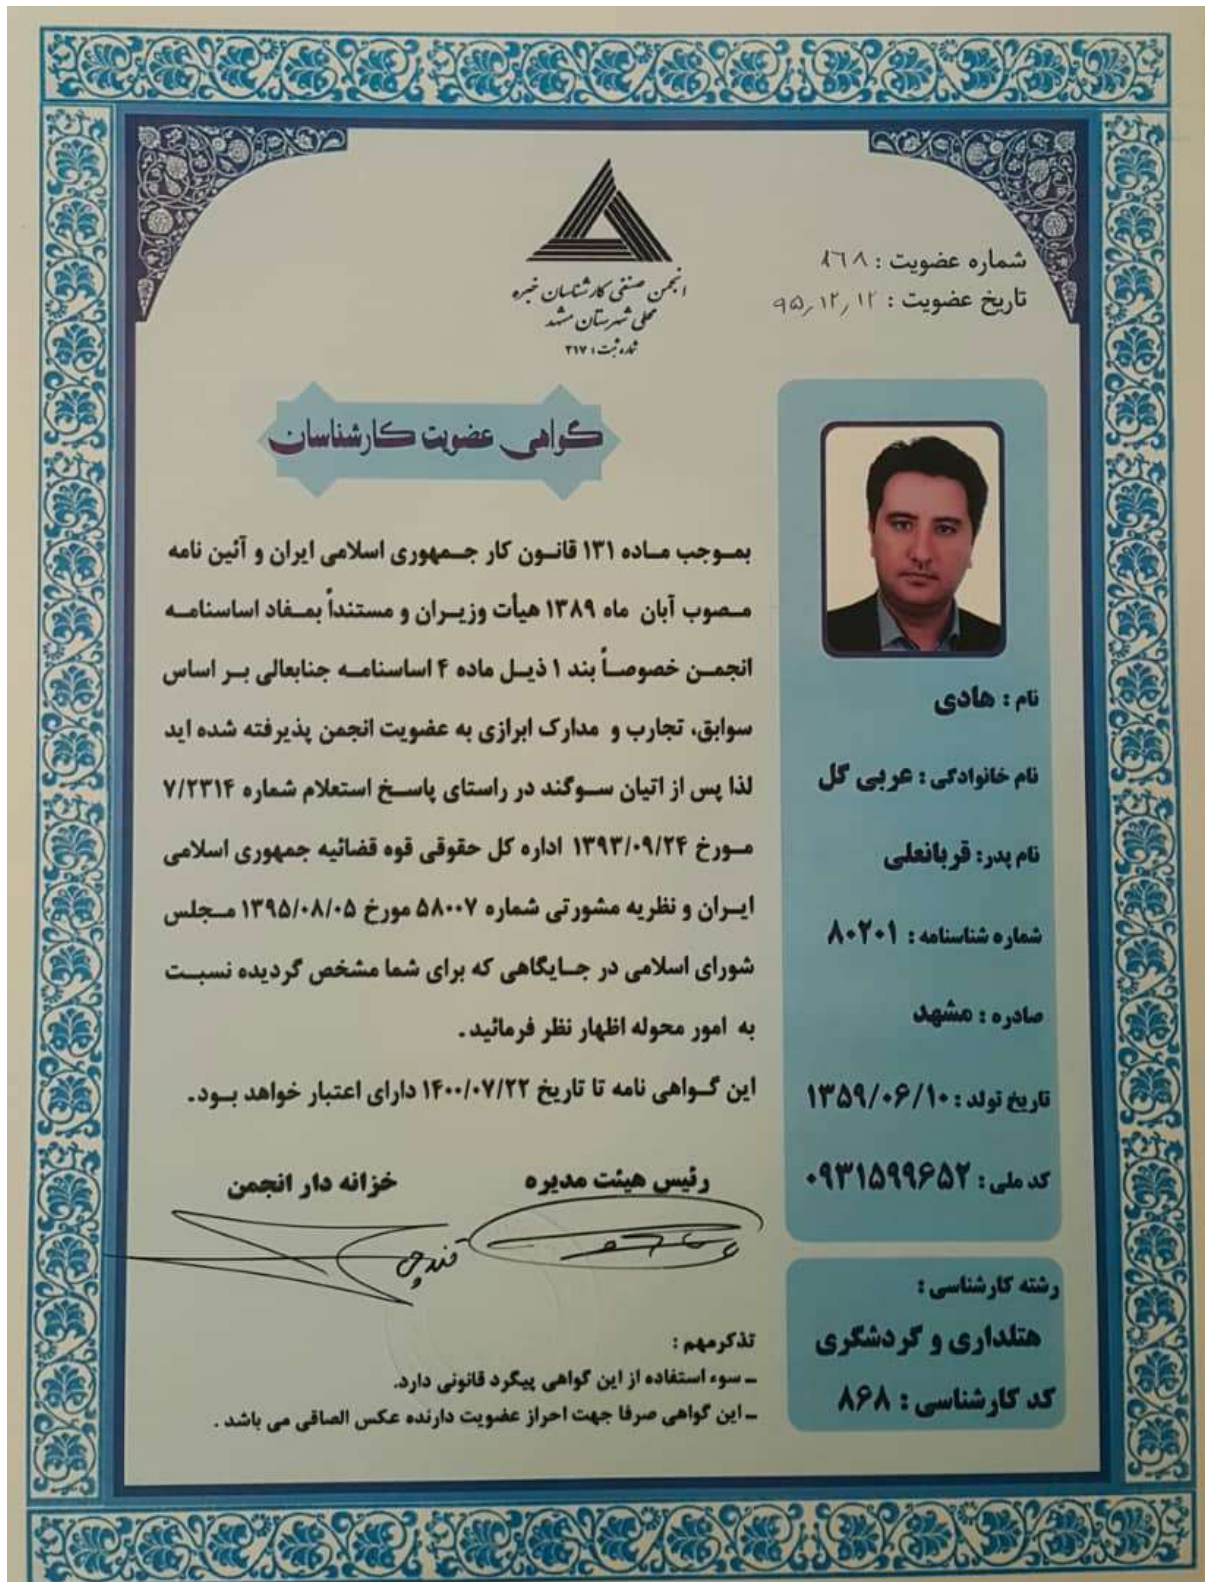 شماره عضویت : ۸۶۸
تاریخ عضویت : ۹۵٫۱۲٫۱۲
انجمن صنفی کارشناسان خبره
محلی شهرستان مشهد
شماره ثبت : ۳۱۷
گواهی عضویت کارشناسان
بمـوجب مـاده ۱۳۱ قانـون کار جـمهوری اسلامی ایران و آئین نامه
مـصوب آبان ماه ۱۳۸۹ هیأت وزیـران و مستنداً بمـفاد اساسنامـه
انجمـن خصوصـاً بند ۱ ذیـل ماده ۴ اساسنامـه جنابعالی بـر اساس
سوابق، تجارب و مدارک ابرازی به عضویت انجمن پذیرفته شده اید
لذا پس از اتیان سـوگند در راستای پاسـخ استعلام شماره ۷/۲۳۱۴
مـورخ ۱۳۹۳/۰۹/۲۴ اداره کل حقوقی قوه قضائیه جمهوری اسلامی
ایـران و نظریه مشورتی شماره ۵۸۰۰۷ مورخ ۱۳۹۵/۰۸/۰۵ مـجلس
شورای اسلامی در جـایگاهی که برای شما مشخص گردیده نسبـت
به امور محوله اظهار نظر فرمائید .
این گـواهی نامه تا تاریخ ۱۴۰۰/۰۷/۲۲ دارای اعتبار خواهد بـود .
رئیس هیئت مدیره
خزانه دار انجمن
قندچی
تذکرمهم :
ـ سوء استفاده از این گواهی پیگرد قانونی دارد.
ـ این گواهی صرفا جهت احراز عضویت دارنده عکس الصاقی می باشد .
نام : هادی
نام خانوادگی : عربی گل
نام پدر: قربانعلی
شماره شناسنامه : ۸۰۲۰۱
صادره : مشهد
تاریخ تولد : ۱۳۵۹/۰۶/۱۰
کد ملی : ۰۹۳۱۵۹۹۶۵۲
رشته کارشناسی :
هتلداری و گردشگری
کد کارشناسی : ۸۶۸